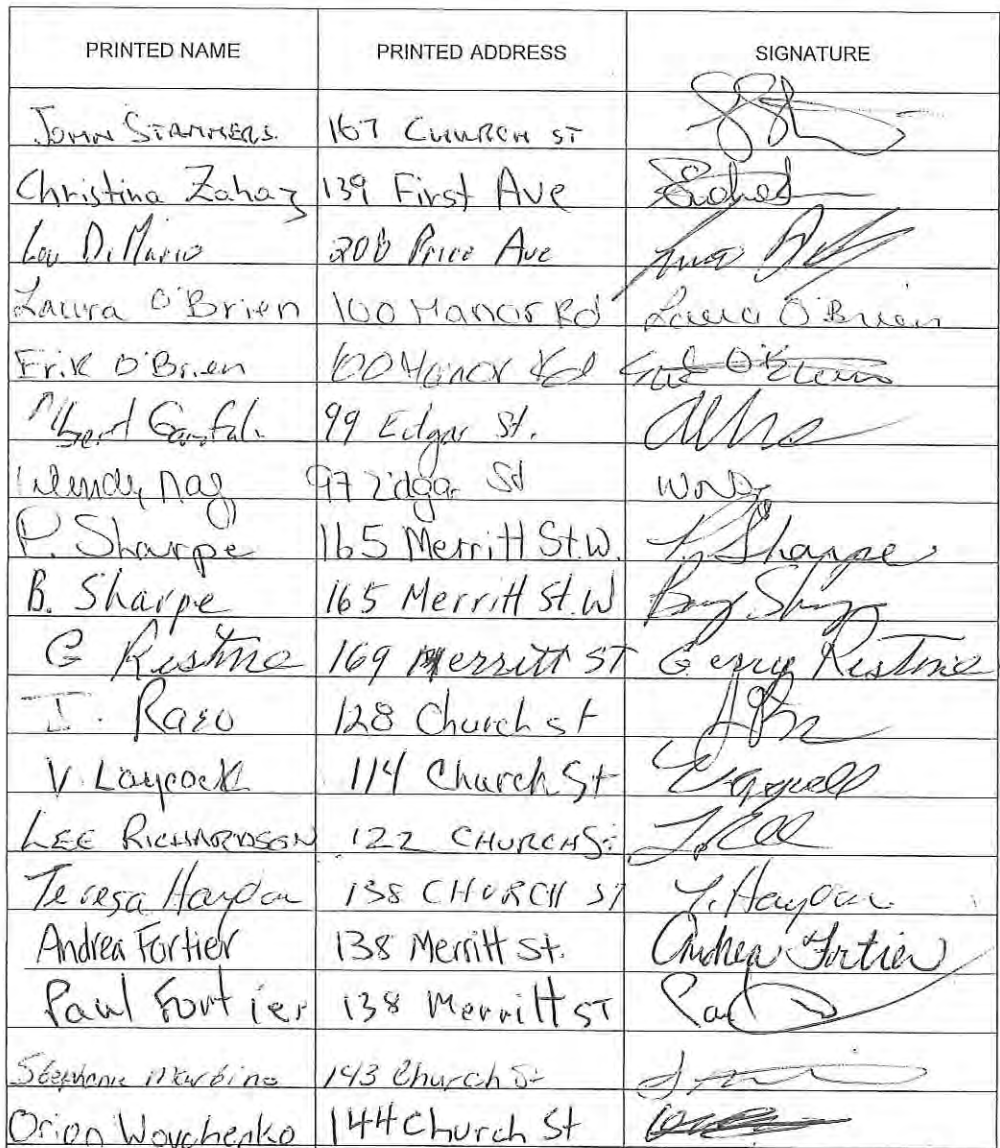 PRINTED NAME PRINTED ADDRESS SIGNATURE
JOHN STAMMERS 167 CHURCH ST
Christina Zahaz 139 First Ave
Lou DiMario 208 Price Ave
Laura O'Brien 100 Manor Rd Laura O'Brien
Erik O'Brien 100 Manor Rd Erik O'Brien
Albert 99 Edgar St.
Wendy Nag 97 Edgar St
P. Sharpe 165 Merritt St.W. P. Sharpe
B. Sharpe 165 Merritt St.W
G 169 Merritt ST Gerry
I. Raso 128 Church st
V. Laycock 114 Church St
LEE RICHARDSON 122 CHURCH St
Teresa Haydon 138 CHURCH ST T. Haydon
Andrea Fortier 138 Merritt St. Andrea Fortier
Paul Fortier 138 Merritt ST Paul
Stephanie 143 Church St
Orion Wovchenko 144 Church St